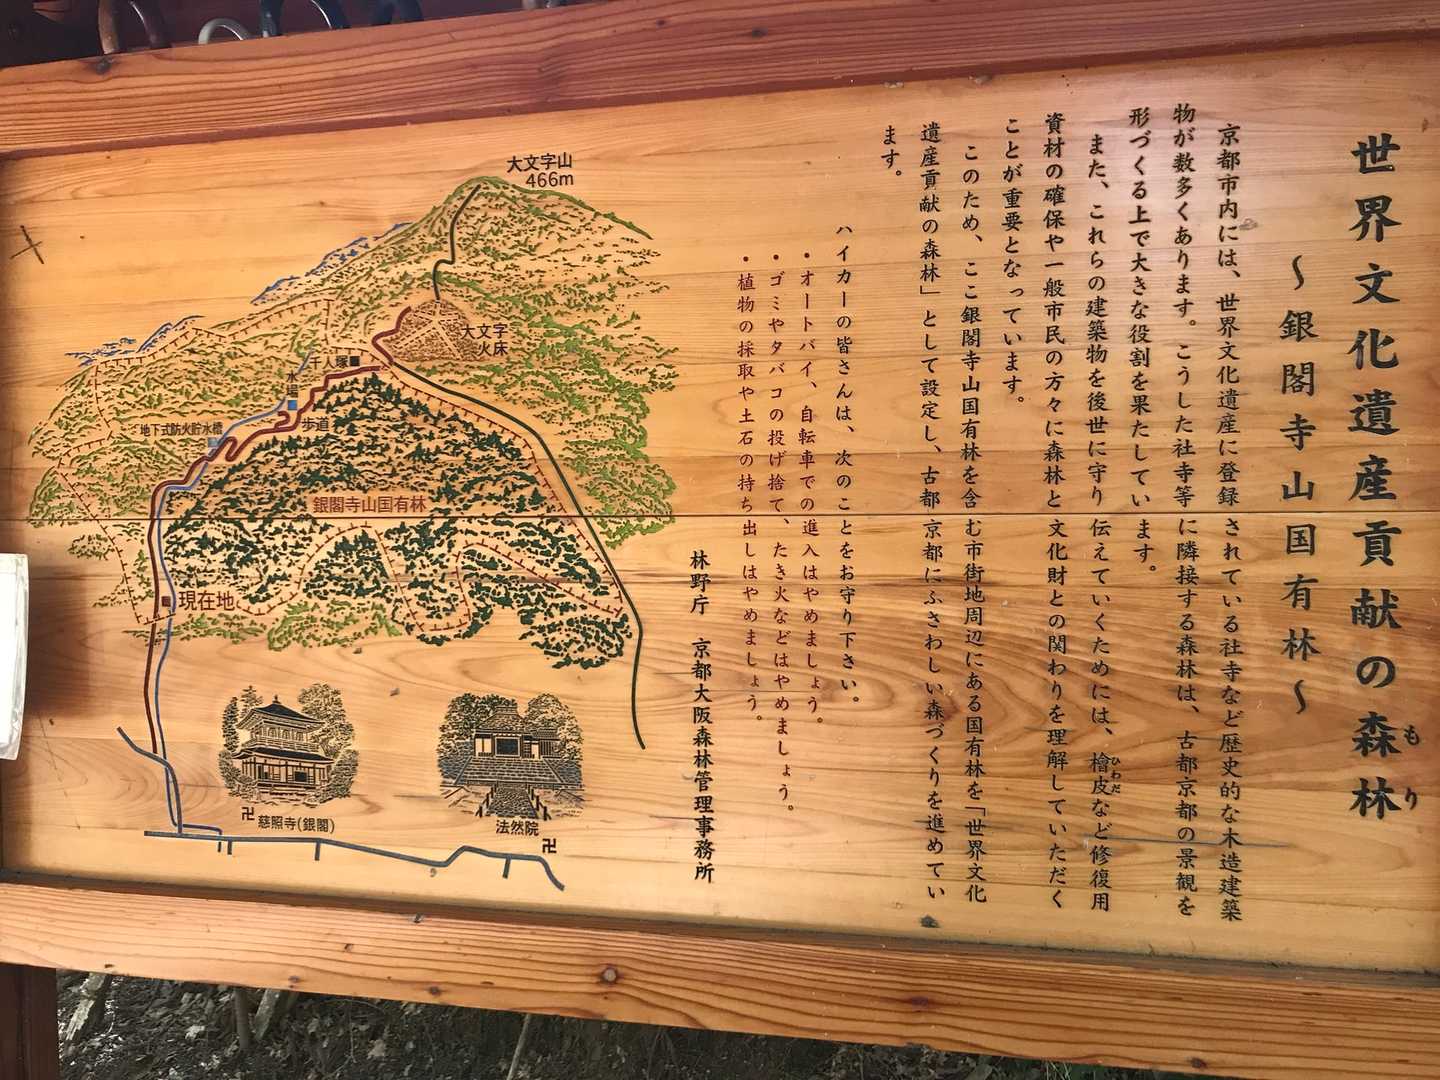 世界文化遺産貢献の森林
もり
～銀閣寺山国有林～
京都市内には、世界文化遺産に登録されている社寺など歴史的な木造建築
物が数多くあります。こうした社寺等に隣接する森林は、古都京都の景観を
形づくる上で大きな役割を果たしています。
また、これらの建築物を後世に守り伝えていくためには、檜皮など修復用
ひわだ
資材の確保や一般市民の方々に森林と文化財との関わりを理解していただく
ことが重要となっています。
このため、ここ銀閣寺山国有林を含む市街地周辺にある国有林を「世界文化
遺産貢献の森林」として設定し、古都京都にふさわしい森づくりを進めてい
ます。
ハイカーの皆さんは、次のことをお守り下さい。
・オートバイ、自転車での進入はやめましょう。
・ゴミやタバコの投げ捨て、たき火などはやめましょう。
・植物の採取や土石の持ち出しはやめましょう。
林野庁 京都大阪森林管理事務所
大文字山
466m
大文字
火床
千人塚
水場
歩道
地下式防火貯水槽
銀閣寺山国有林
現在地
卍
慈照寺(銀閣)
法然院
卍